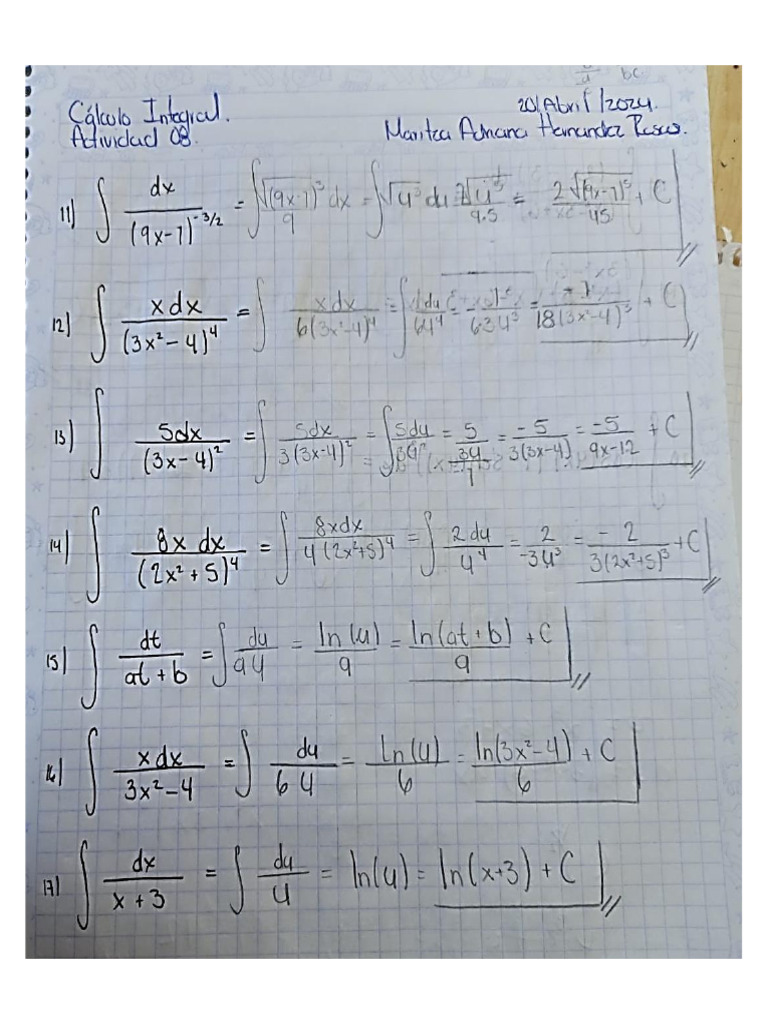 Cálculo Integral. 20/Abril/2024.
Actividad 08. Maritza Adriana Hernandez
11) ∫ dx/(9x-7)^(-3/2) = ∫ √(9x-7)³ dx/9 = ∫ √u³ du 2√u⁵/9·5 = 2√(9x-7)⁵/45 + C
12) ∫ xdx/(3x²-4)⁴ = ∫ xdx/6(3x²-4)⁴ = ∫ du/6u⁴ = -1/6·3u³ = -1/18(3x²-4)³ + C
13) ∫ 5dx/(3x-4)² = ∫ 5dx/3(3x-4)² = ∫ 5du/3u² = 5/(3u/1) = -5/3(3x-4) = -5/9x-12 + C
14) ∫ 8x dx/(2x²+5)⁴ = ∫ 8xdx/4(2x²+5)⁴ = ∫ 2du/u⁴ = 2/-3u³ = -2/3(2x²+5)³ + C
15) ∫ dt/at+b = ∫ du/au = ln(u)/a = ln(at+b)/a + C
16) ∫ xdx/3x²-4 = ∫ du/6u = ln(u)/6 = ln(3x²-4)/6 + C
17) ∫ dx/x+3 = ∫ du/u = ln(u) = ln(x+3) + C